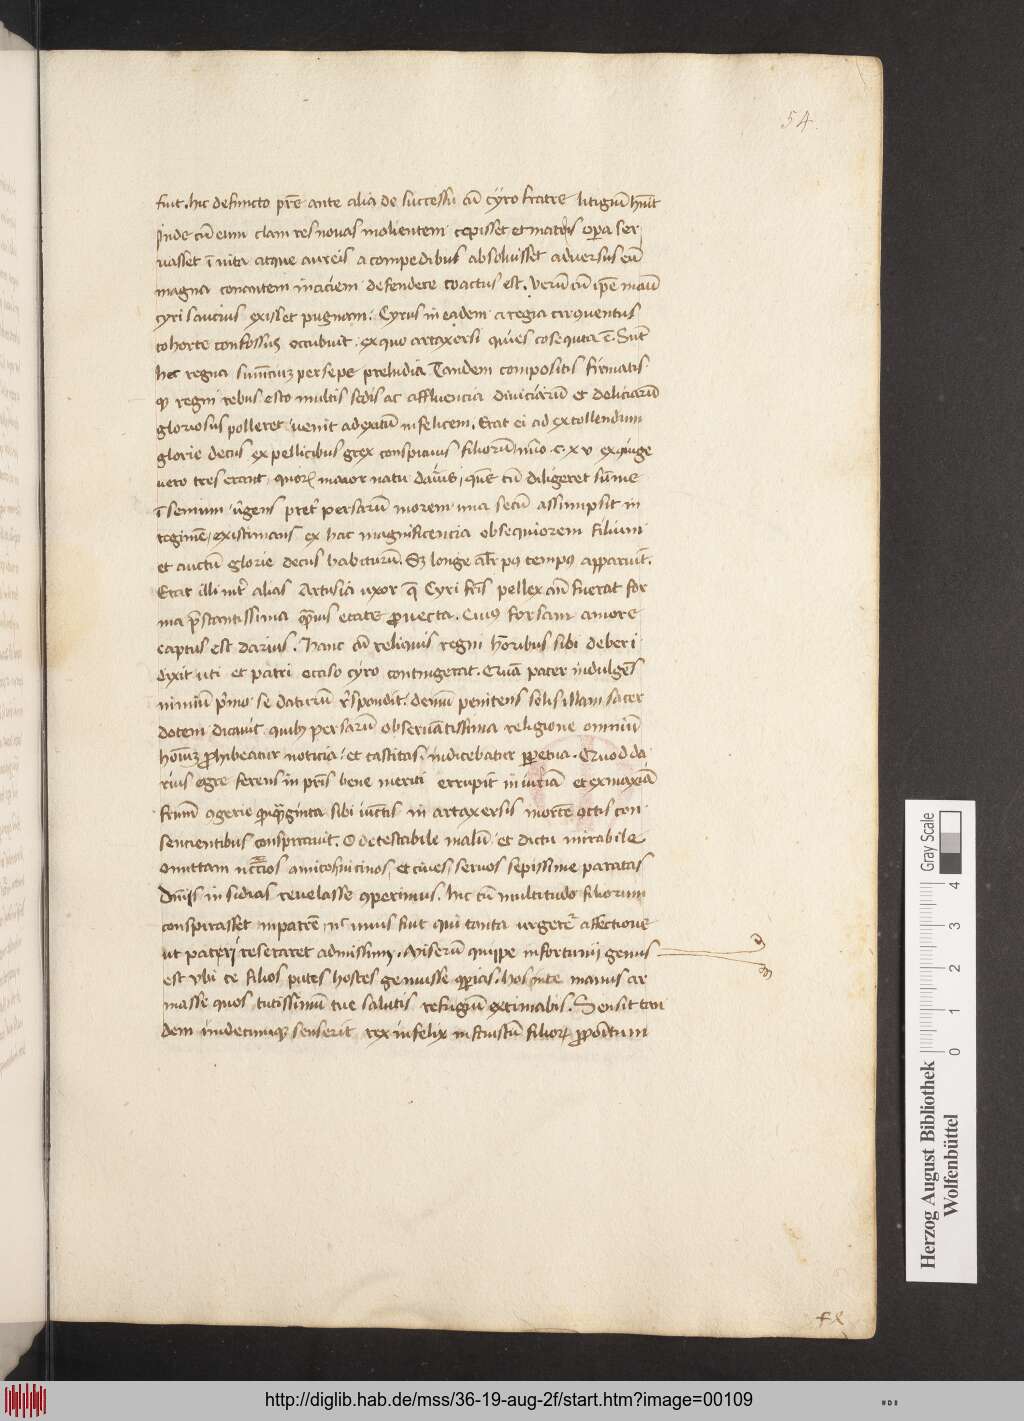 54.
fuit. hic defuncto pr̄e ante alia de successu cū cyro fratre litigiū hūit
Inde cū eum clam res novas molientem cepisset et matris opa ser
vasset ī vita atque aureis a compedibus absolvisset adversus eū
magna conantem in aciem defendere coactus est. Verū cū ip̄e manū
cyri saucius exisset pugnam: Cyrus in eadem a regia circuventus
cohorte confossus occubuit. ex quo artaxersi quies cōsequta ē. Sunt
hec regna
preludia Tandem compositis firmatis
q regni rebus esto multis sedis ac affluencia diviciarū et deliciarū
gloriosus polleret venit ad exitū infelicem. Erat ei ad extollendum
glorie decus ex pellicibus grex conspicuus filiorū nūo c.x.v ex
vero tres erant, quor maior natu darius, quē cū diligeret sūme
ī senium vergens preter persarū morem una secū assumpsit in
regimē, existimans ex hac magnificencia obsequiorem filium
et auctū glorie decus habiturū. Sz longe alr pꝰ tempꝰ apparuit.
Erat illi inter alias Artusia uxor q̄ Cyri fr̄is pellex fuerat for
ma p̄stantissima q̄vis etate provecta. Cuiꝰ forsam amore
captus est darius. Hanc cū reliquis regni honoribus sibi deberi
dixit uti et patri occaso cyro contingerat. Quā pater indulgēs
nimiū primo se daturū respondit. demū penitens solis illam sacer
dotem dicavit quibꝰ persarū observātissima religione omniū
hoīuꝫ prohibeatur noticia. et castitas indicebatur perpetua. Quod da
rius egre ferens in pr̄is bene meriti errupit in iuriā et ex maxīā
frūm agerie quīquagīnta sibi iūctis in artaxersis mortē cōctis con
sencientibus conspiravit. O detestabile malū et dictu mirabile
Omittam amicos vicinos, et cives, servos sepissime paratas
Dnis insidias revelasse comperimus. Hic cū multitudo filiorum
conspirasset in patrē nec unus fuit qui tanta urgeretur affectione
ut patri reseraret admissum. Miserū quippe infortunij genus
est ubi te filios putes hostes genuisse proprias. Hos in te manus ar
masse quos tutissimū tue salutis refugiū extimabis. Sensit tan
dem undecumque senserit rex infelix infaustū filior propoitum
Herzog August Bibliothek
Wolfenbüttel
Gray Scale
0 1 2 3 4
http://diglib.hab.de/mss/36-19-aug-2f/start.htm?image=00109